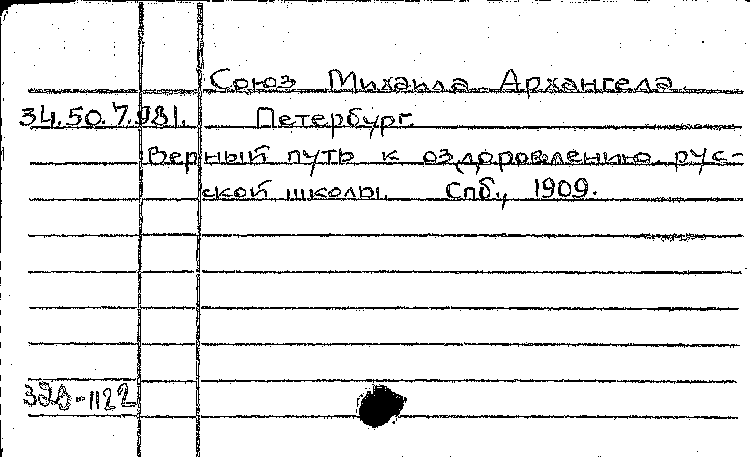 Союз Михаила Архангела.
34.50.7.981. Петербург.
Верный путь к оздоровлению рус-
ской школы. Спб., 1909.